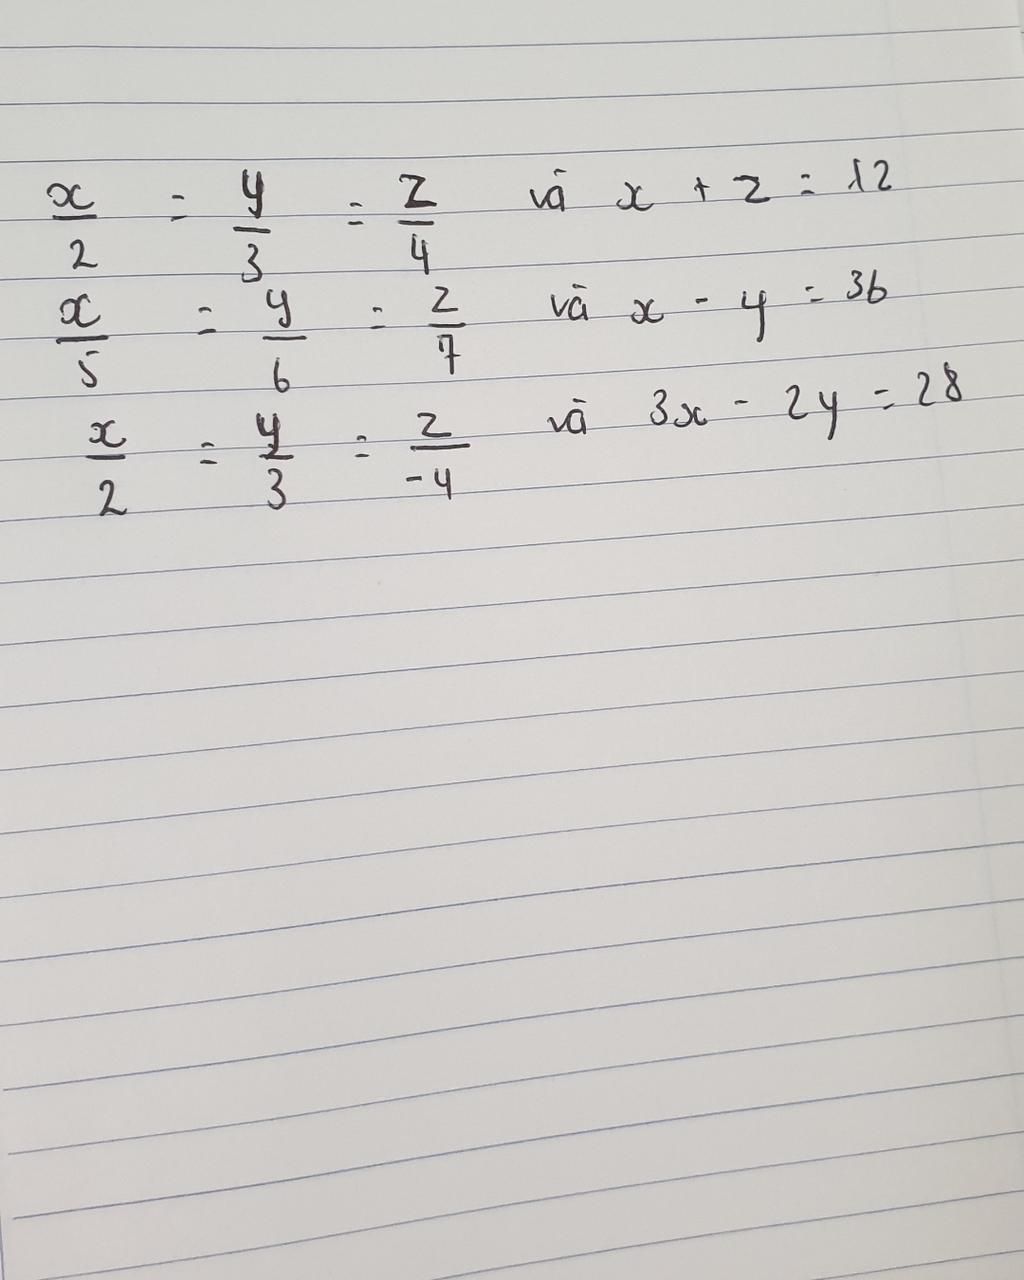 x/2 = y/3 = z/4 và x + z = 12
x/5 = y/6 = z/7 và x - y = 36
x/2 = y/3 = z/-4 và 3x - 2y = 28